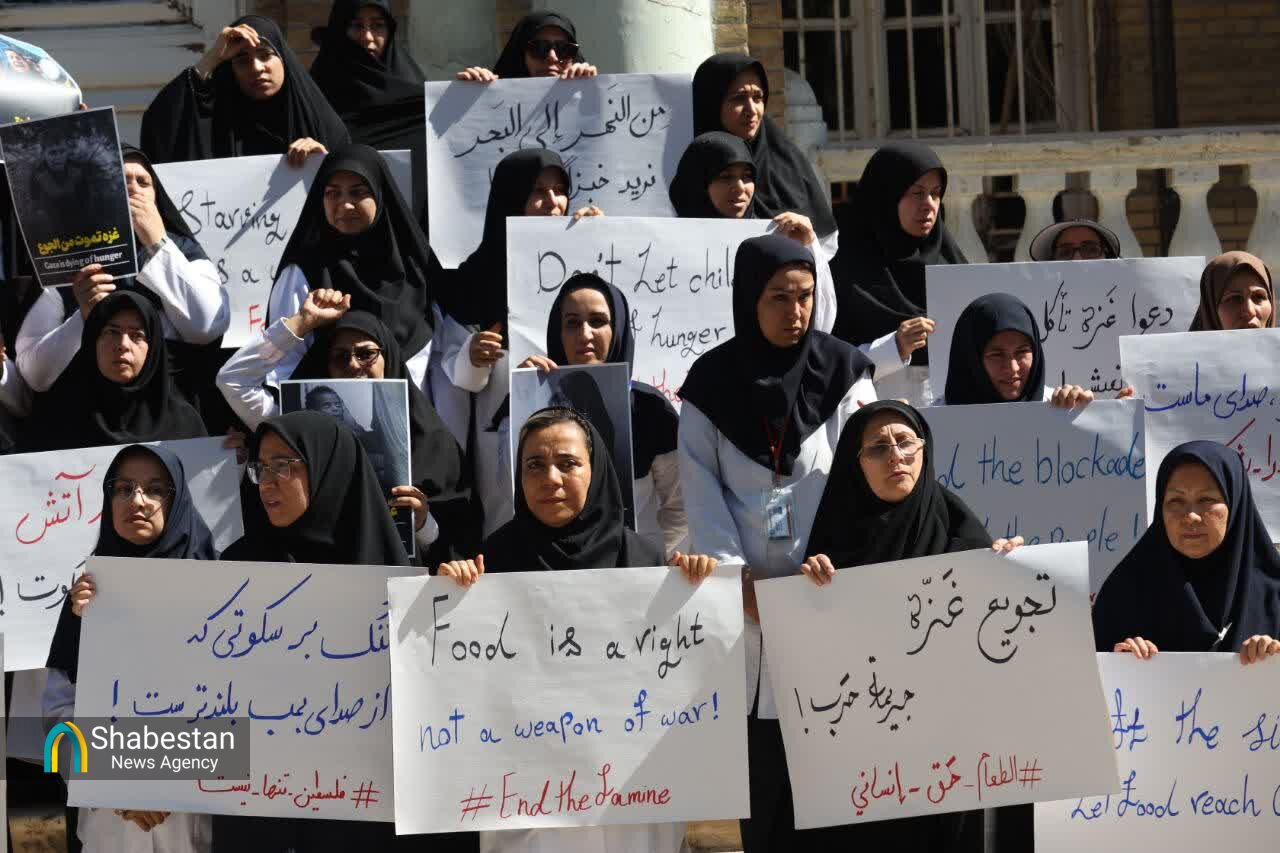 من النهر إلى البحر
نريد خبزا
Starving
is a
غزه تموت من الجوع
Gaza is dying of hunger
Don't Let chil
f hunger
دعوا غزة تأكل
صدای ماست
آتش
the blockade
the people!
ننگ بر سکوتی که
از صدای بمب بلندتر ست!
#فلسطین_تنها_نیست
Food is a right
not a weapon of war!
#End the famine
تجويع غزة
جريمة حرب!
#الطعام_حق_إنساني
the si
Let Food reach
Shabestan
News Agency